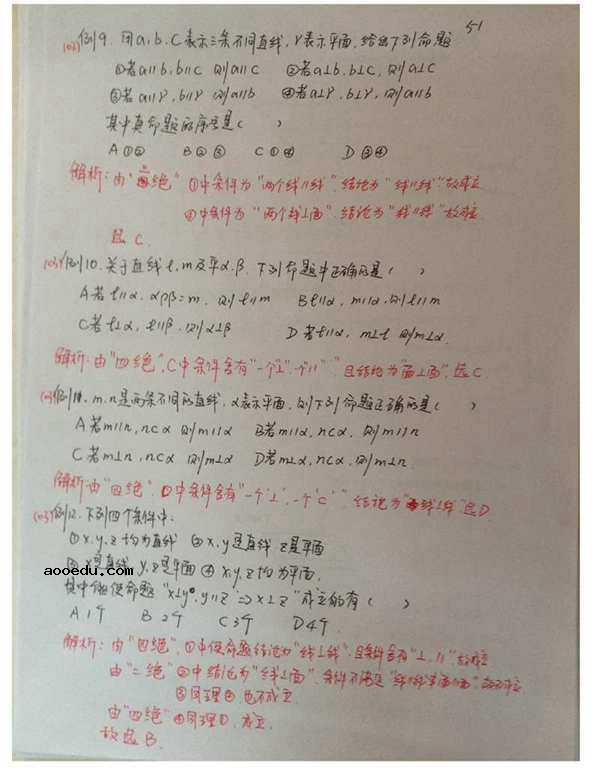 51
(03)例9. 用a,b,c表示三条不同直线,γ表示平面,给出下列命题
①若a∥b,b∥c 则a∥c ②若a⊥b,b⊥c,则a⊥c
③若a∥γ,b∥γ 则a∥b ④若a⊥γ,b⊥γ,则a∥b
其中真命题的序号是( )
A①② B②③ C①④ D③④
解析:由"四绝"①中条件为"两个线∥线",结论为"线∥线"故成立
④中条件为"两个线⊥面",结论为"线∥线"故成立.
选C.
例10.关于直线l,m及平α,β,下列命题中正确的是( )
A若l∥α,α∩β=m,则l∥m B l∥α,m∥α,则l∥m
C若l⊥α,l∥β,则α⊥β D若l∥α,m⊥l 则m⊥α.
解析:由"四绝",C中条件含有"一个⊥,一个∥"且结论为"面⊥面",选C.
m,n是两条不同的直线,α表示平面,则下列命题正确的是( )
A若m∥n,n⊂α 则m∥α B若m∥α,n⊂α,则m∥n
C若m⊥n,n⊂α 则m⊥α D若m⊥α,n⊂α,则m⊥n.
解析:由"四绝",D中条件含有"一个⊥,一个⊂",结论为"线⊥线"选D
例12.下列四个条件中:
①x,y,z均为直线 ②x,y是直线 z是平面
③x是直线 y,z是平面 ④x,y,z均为平面.
aooedu.com
其中能使命题"x⊥y,y∥z⇒x⊥z"成立的有( )
A 1个 B 2个 C3个 D4个.
解析:由"四绝",①中使命题结论为"线⊥线",且条件含有"⊥,∥"故成立
由"二绝"②中结论为"线⊥面",条件不满足
③同理②,也不成立.
由"四绝"④同理①,成立.
故选B.